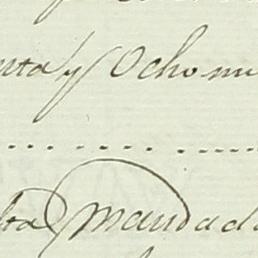 nta y Ocho mi
lta mandada